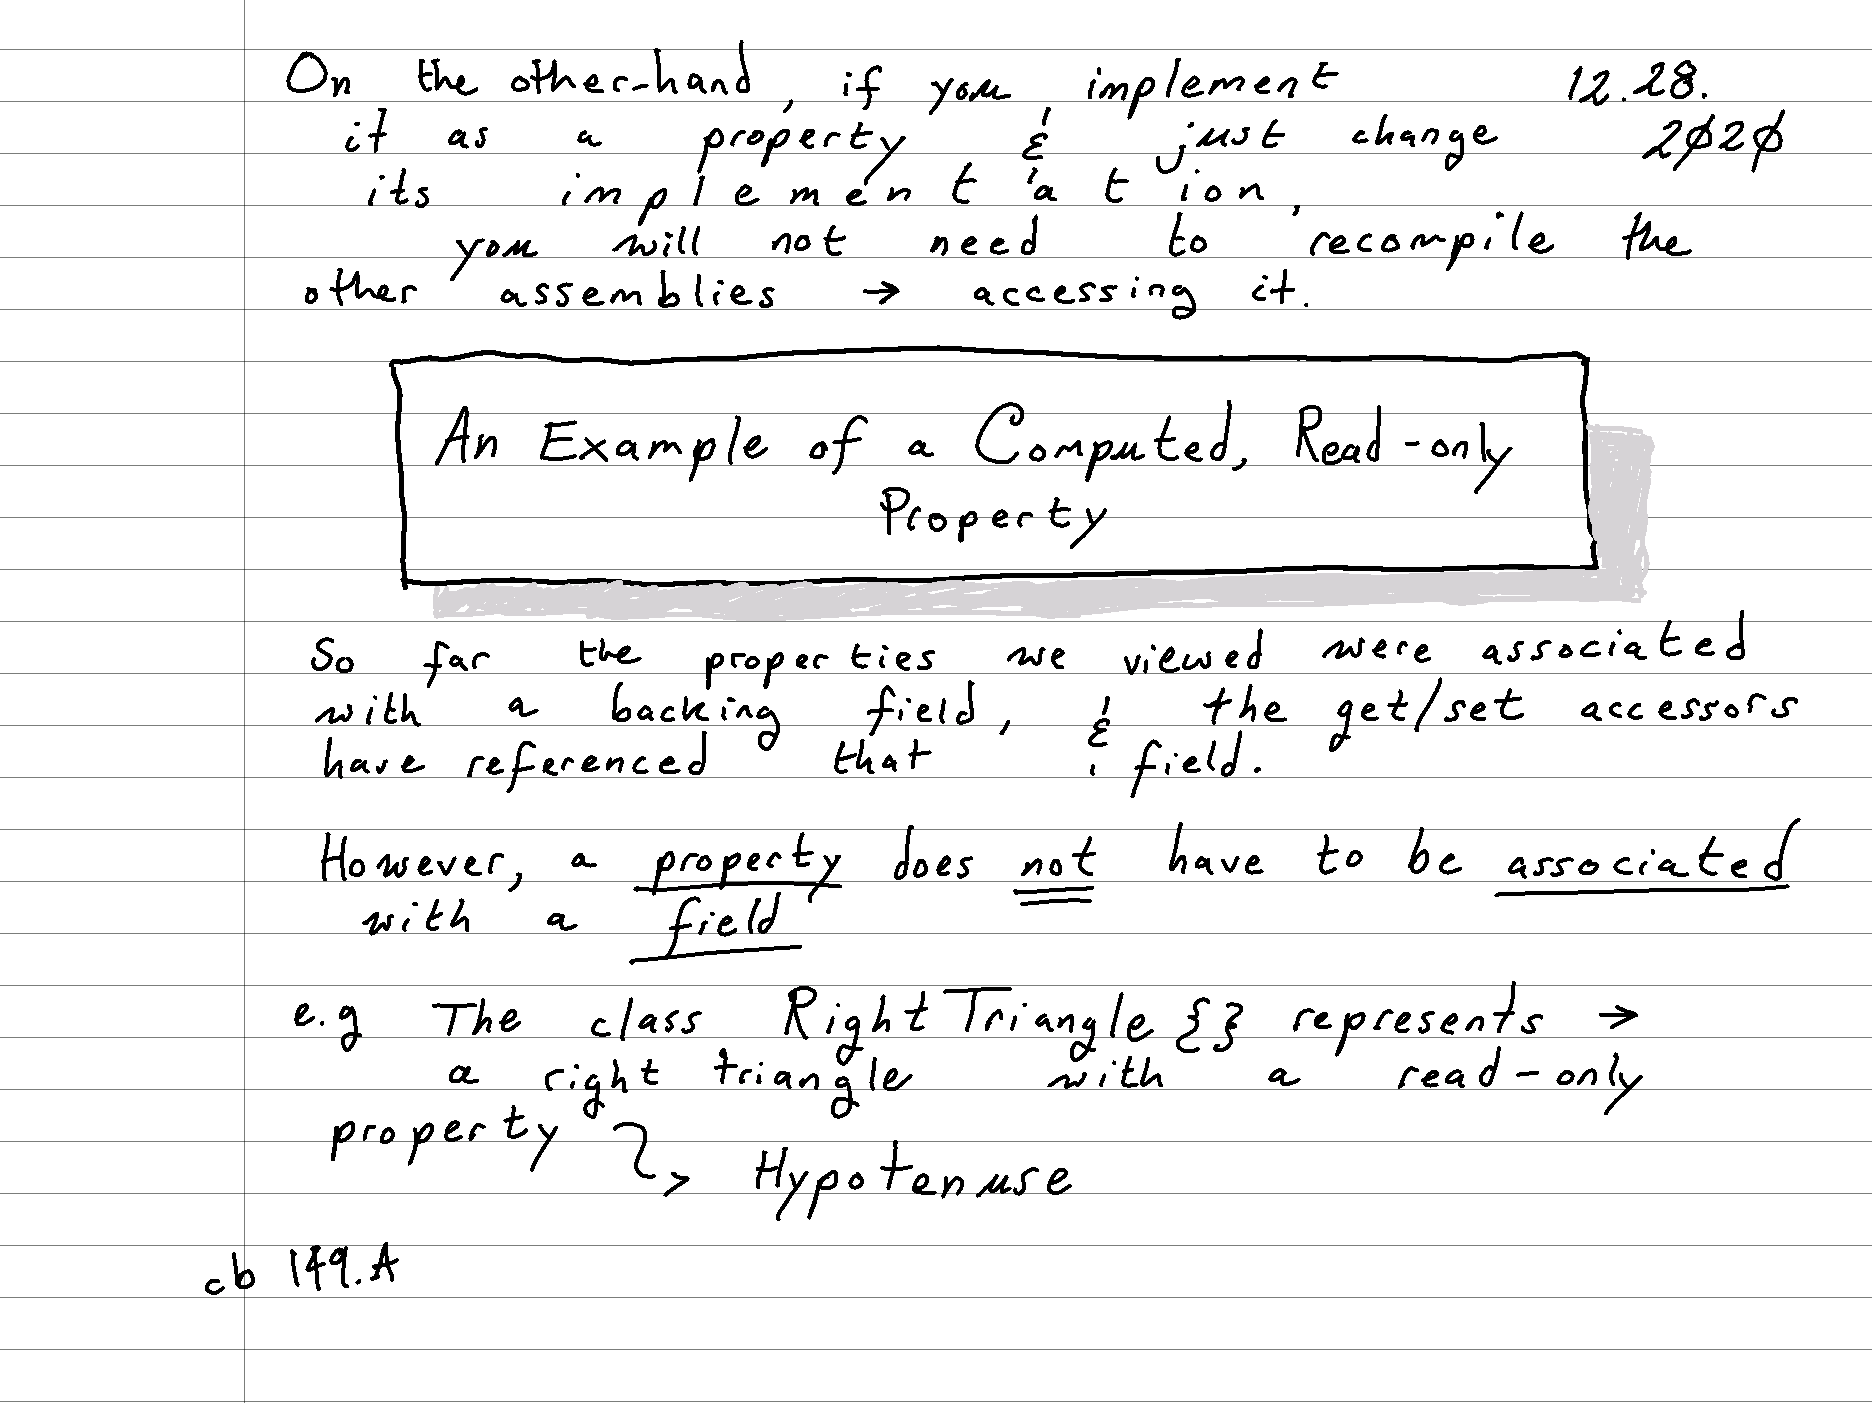 On the other-hand, if you implement 12.28.
it as a property & just change 2020
its implementation,
you will not need to recompile the
other assemblies → accessing it.
An Example of a Computed, Read-only
Property
So far the properties we viewed were associated
with a backing field, & the get/set accessors
have referenced that field.
However, a property does not have to be associated
with a field
e.g The class RightTriangle {} represents →
a right triangle with a read-only
property → Hypotenuse
cb 149.A